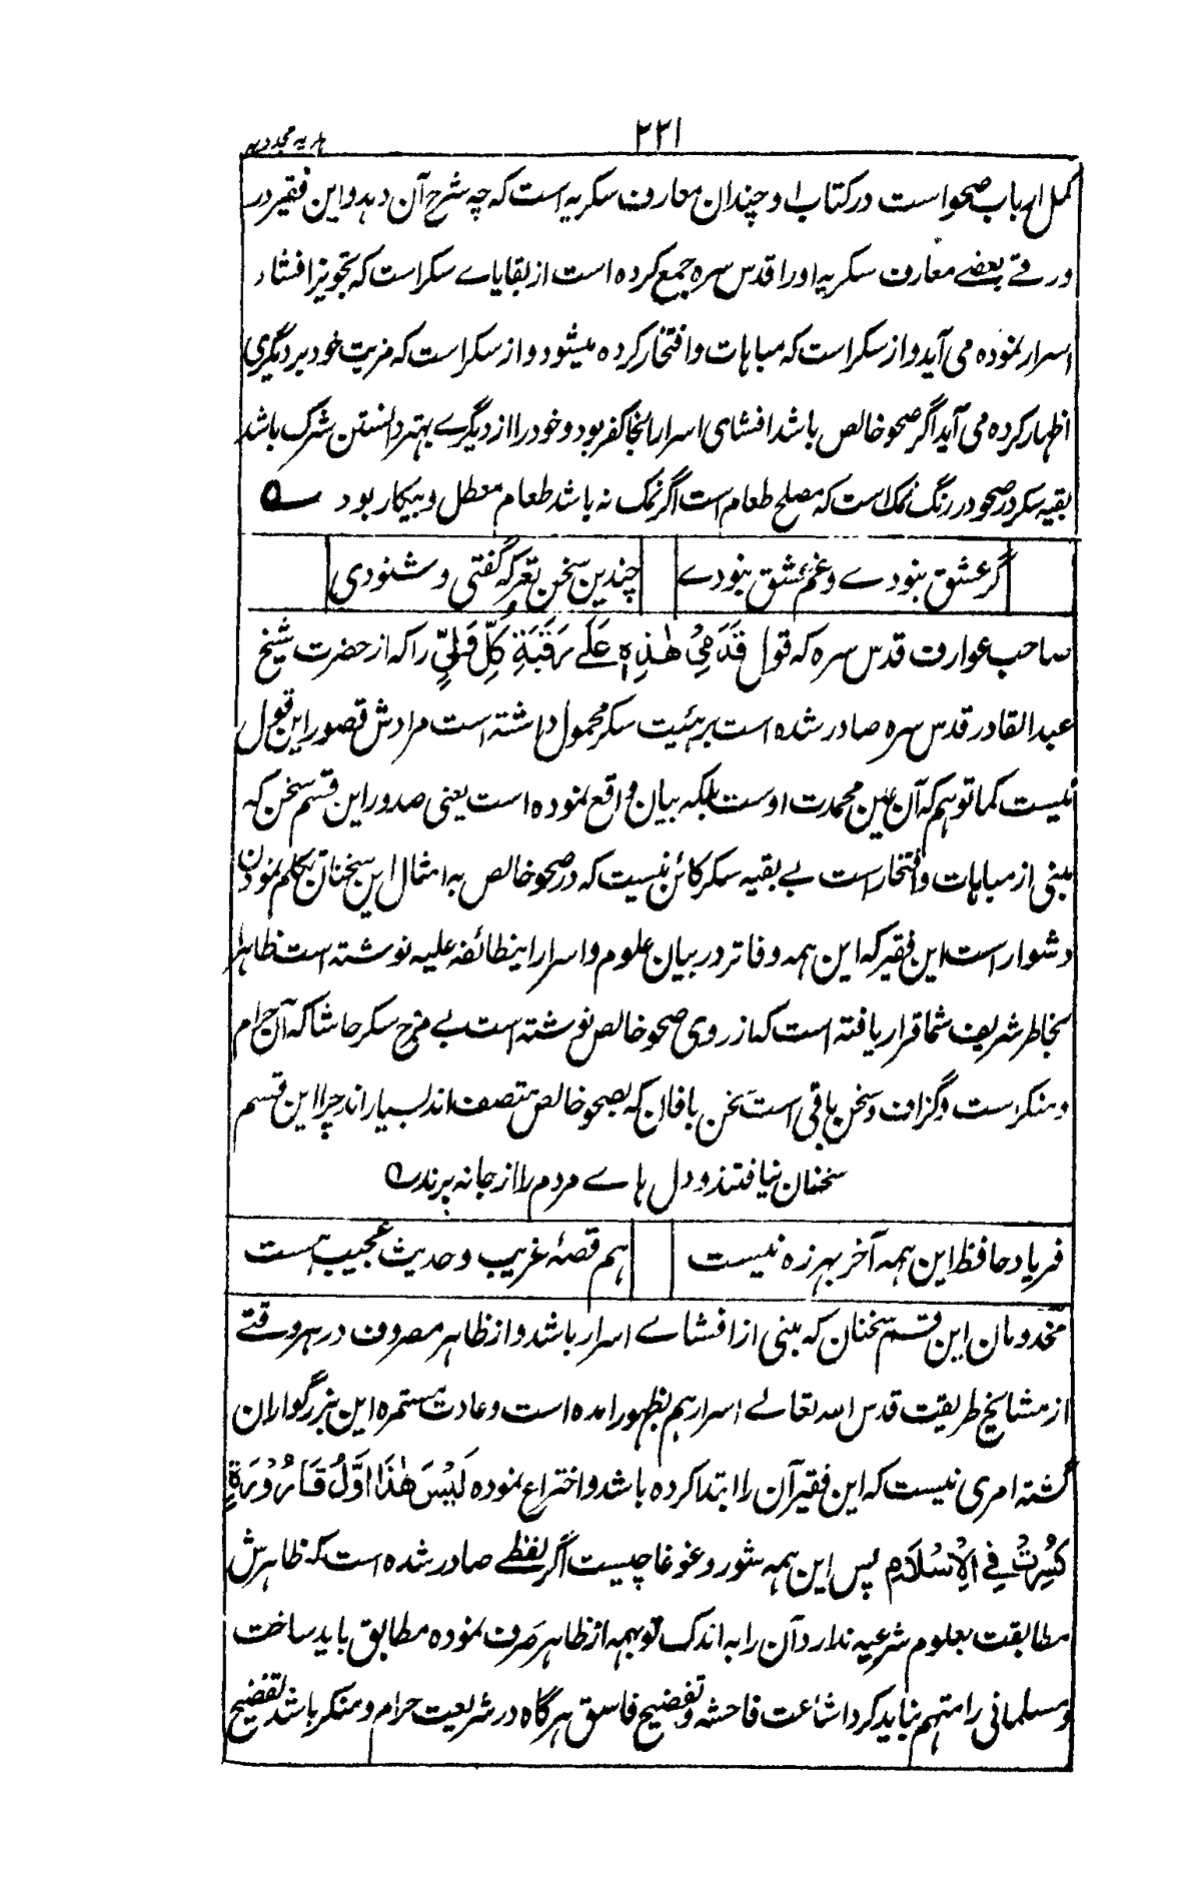 ۲۳۱
ہدیہ مجددیہ
کمل ارباب صحو است در کتاب او چندان معارف سکریہ است کہ چہ شرح آن دہد و این فقیر در
ورقے بعضے معارف سکریہ او را قدس سرہ جمع کردہ است از بقایاے سکر است کہ تجویز افشاء
اسرار نمودہ می آید و از سکر است کہ مباہات و افتخار کردہ میشود و از سکر است کہ مزیت خود بر دیگری
اظہار کردہ می آید اگر صحو خالص باشد افشای اسرار اینجا کفر بود و خود را از دیگرے بہتر دانستن شرک باشد
بقیہ سکر در صحو در رنگ نمک است کہ مصلح طعام است اگر نمک نہ باشد طعام معطل و بیکار بود ؎
گر عشق نبودے و غم عشق نبودے چندین سخن نغز کہ گفتی و شنودی
صاحب عوارف قدس سرہ کہ قول قَدَمِیْ ھٰذِہٖ عَلٰے رَقَبَۃِ کُلِّ وَلِیٍّ را کہ از حضرت شیخ
عبد القادر قدس سرہ صادر شدہ است بر ہئیت سکر محمول داشتہ است مرادش قصور این قول
نیست کما توہم کہ آن عین محمدت اوست بلکہ بیان واقع نمودہ است یعنی صدور این قسم سخن کہ
مبنی از مباہات و افتخار است بے بقیہ سکر کائن نیست کہ در صحو خالص بہ امثال این سخنان تکلم نمودن
دشوار است این فقیر کہ این ہمہ دفاتر در بیان علوم و اسرار اینطائفہ علیہ نوشتہ است ظاہرا
بخاطر شریف شما قرار یافتہ است کہ از روی صحو خالص نوشتہ است بے مزج سکر حاشا کہ آن حرام
و منکر ست و گزاف و سخن بافی است سخن بافان کہ بصحو خالص متصف اند بسیار اند چرا این قسم
سخنان نیافتند و دل ہاے مردم را از جا نہ برند ؎
فریاد حافظ این ہمہ آخر بہرزہ نیست ہم قصۂ غریب و حدیث عجیب ہست
مخدومان این قسم سخنان کہ مبنی از افشاے اسرار باشد و از ظاہر مصروف در ہر وقتے
از مشایخ طریقت قدس اللہ تعالے اسرارہم بظہور امدہ است و عادت مستمرہ این بزرگواران
گشتہ امری نیست کہ این فقیر آن را ابتدا کردہ باشد و اختراع نمودہ لَیْسَ ھٰذَا اَوَّلُ قَارُوْرَۃٍ
کُسِرَتْ فِے الْاِسْلَامِ پس این ہمہ شور و غوغا چیست اگر لفظے صادر شدہ است کہ ظاہرش
مطابقت بعلوم شرعیہ ندارد آن را بہ اندک توجہہ از ظاہر صَرف نمودہ مطابق باید ساخت
و مسلمانی را متہم نباید کرد اشاعت فاحشہ و تفضیح فاسق ہر گاہ در شریعت حرام و منکر باشد تفضیح